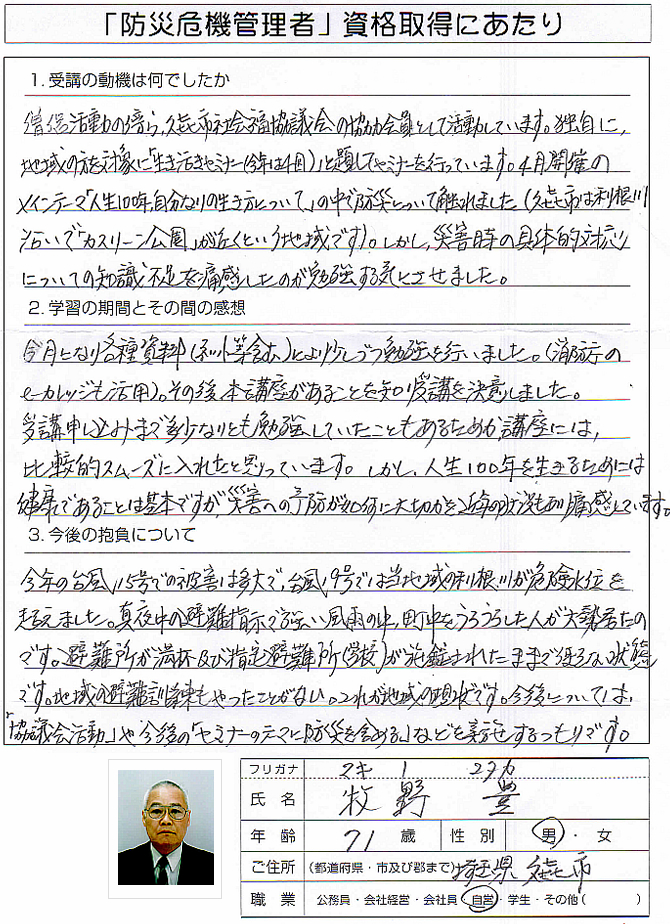 「防災危機管理者」資格取得にあたり
1. 受講の動機は何でしたか
活動の傍ら、久喜市社会福協議会の協力会員として活動しています。独自に、
地域の方を対象に「生き活きセミナー(今年は4月)」と題してセミナーを行っています。4月開催の
メインテーマ「人生100年、自分なりの生き方について」の中で防災について触れました(久喜市は利根川
沿いで「カスリーン公園」が近くという地域です)。しかし、災害時の具体的対応
についての知識不足を痛感したのが勉強する気にさせました。
2. 学習の期間とその間の感想
今月となり各種資料(ネット等含む)により少しづつ勉強を行いました。(消防庁の
e-カレッジも活用)。その後、本講座があることを知り受講を決意しました。
受講申し込みまで多少なりとも勉強していたこともあるためか講座には、
比較的スムーズに入れたと思っています。しかし、人生100年を生きるためには
健康であることは基本ですが、災害への予防が如何に大切かを近年の状況も痛感しています。
3. 今後の抱負について
今年の台風15号での被害は多大で、台風19号では当地域の利根川が危険水位を
超えました。真夜中の避難指示で強い風雨の中、町中をうろうろした人が大勢居たの
です。避難所が満杯及び指定避難所(学校)が施錠されたままで入れない状態
です。地域の避難訓練もやったことがない。これが地域の現状です。今後については、
「協議会活動」や今後の「セミナーのテーマに防災を含める」などを するつもりです。
フリガナ マキノ ユタカ
氏名 牧野 豊
年齢 71 歳 性別 男・女
ご住所 (都道府県・市及び郡まで) 埼玉県久喜市
職業 公務員・会社経営・会社員・自営・学生・その他( )